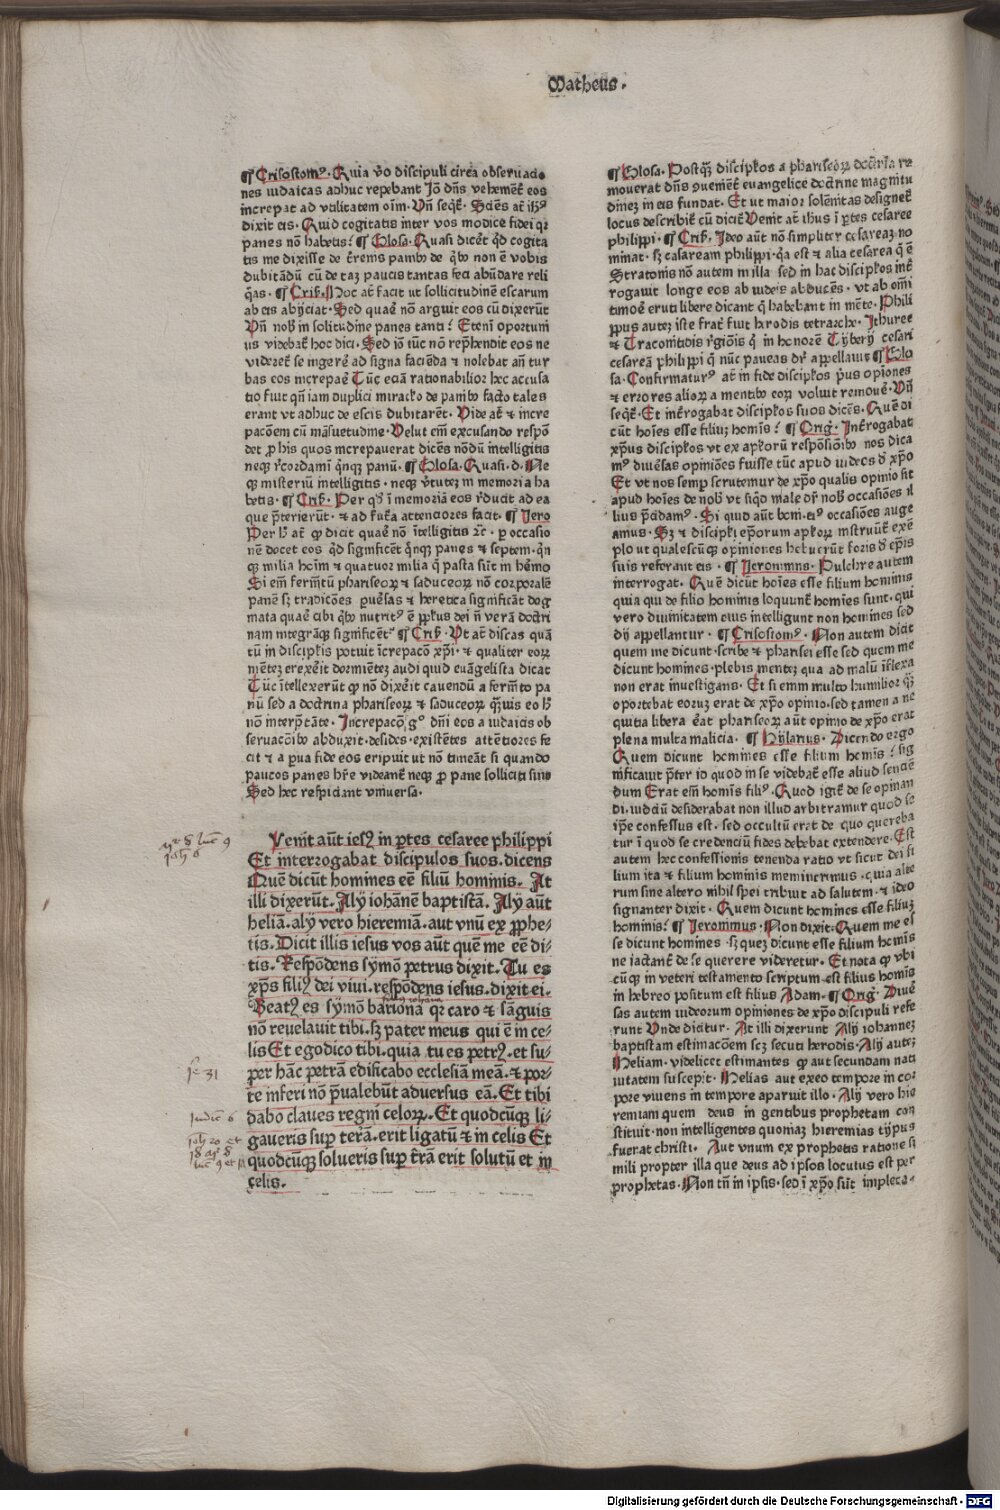 Matheus.
¶ Crisostomꝰ. Quia v̄o discipuli circa obseruatio
nes iudaicas adhuc repebant Iō dn̄s vehemēt̄ eos
increpat ad vtilitatem oīm. Vn̄ seqt̄. Sciēs at̄ ihꝰ
dixit eis. Quid cogitatis inter vos modice fidei qꝛ
panes nō habetis? ¶ Glosa. Quasi dicēt qd̄ cogita
tis me dixisse de t̄renis panibꝰ de qͥbꝰ non ē vobis
dubitādū cū de taꝫ paucis tantas feci abūdare reli
qͥas. ¶ Cris̄. Hoc at̄ facit ut sollicitudinē escarum
ab eis abijciat. Sed quaē nō arguit eos cū dixerūt
Vn̄ nob̄ in solitudine panes tanti? Etenī oportuni
us videbat̄ hoc dici. Sed iō tūc nō rephēndit eos ne
videret̄ se ingerē ad signa faciēda et nolebat an̄ tur
bas eos increpaē Tūc eciā rationabilior hec accusa
tio fuit qn̄ iam duplici miraclo de panibꝰ facto tales
erant vt adhuc de escis dubitarēt. Vide at̄ et incre
pacōem cū māsuetudine. Velut em̄ excusando respō
det ꝓ his quos increpauerat dicēs nōdū intelligitis
neqꝫ r̄cordamī qͥnqꝫ panū. ¶ Glosa. Quasi. d. Ne
qꝫ misteriū intelligitis. neqꝫ v̄tutez in memoria ha
betis. ¶ Cris̄. Per qd̄ ī memoriā eos r̄ducit ad ea
que p̄terierūt. et ad fut̄a attenciores facit. ¶ Iero
Per h̄ at̄ ꝙ dicit quaē nō ītelligitis ⁊c̄. p occasio
nē docet eos qd̄ significēt qͥnqꝫ panes et septem. qͥn
qꝫ milia hoīm et quatuor milia qͥ pasta sūt in hēmo
Si em̄ fermētū phariseoꝝ et saduceoꝝ nō corporalē
panē sꝫ tradicōes puēsas et heretica significāt dog
mata quaē cibi qͥbꝰ nutritꝰ ē pplus dei n̄ verā doctri
nam integrāqꝫ significēt? ¶ Cris̄. Vt at̄ discas quā
tū in discipłis potuit īcrepacō xp̄i. et qualiter eoꝝ
mētez erexēit dormiētez audi quid euāgelista dicat
Tūc ītellexerūt ꝙ nō dixēit cauendū a fermēto pa
nū sed a doctrina phariseoꝝ et saduceoꝝ qͣꝫuis eo h̄
nō interp̄tāte. Increpacō gͦ dn̄i eos a iudaicis ob
seruacōibꝰ abduxit. desides. existētes attētiores fe
cit et a pua fide eos eripuit ut nō timeāt si quando
paucos panes hr̄e videant̄ neqꝫ ꝓ pane solliciti sint
Sed hec respiciant vniuersa.
Venit aūt iesꝰ in ptes cesaree philippi
Et interrogabat discipulos suos. dicens
Quē dicūt homines eē filiū hominis. At
illi dixerūt. Alij iohānē baptistā. Alij aūt
heliā. alij vero hieremiā. aut vnū ex ꝓphe-
tis. Dicit illis iesus vos aūt quē me eē di-
tis. Respōdens symō petrus dixit. Tu es
xp̄s filiꝰ dei viui. respōdens iesus. dixit ei.
Beatꝰ es symō bariona qꝛ caro et sāguis
nō reuelauit tibi. sꝫ pater meus qui ē in ce-
lis Et ego dico tibi. quia tu es petrꝰ. et su-
per hāc petrā edificabo ecclesiā meā. et por-
te inferi nō p̄ualebūt aduersus eā. Et tibi
dabo claues regni celoꝝ. Et quodcūqꝫ li-
gaueris suꝑ terā. erit ligatū et in celis Et
quodcūqꝫ solueris suꝑ t̄rā erit solutū et in
celis.
¶ Glosa. Postqꝫ discipłos a phariseoꝝ doctrīa re
mouerat dn̄s 9uenient̄ euangelice doctrine magnitu
dinez in eis fundat. Et ut maior solēnitas designet̄
locus describit̄ cū dicit̄ Venit at̄ ihus ī ptes cesaree
philippi. ¶ Cris̄. Ideo aūt nō simpliciter cesareaꝫ no
minat. sꝫ casaream philippi. qͥa est et alia cesarea q̄ ē
Stratonis nō autem in illa sed in hac discipłos int̄
rogauit longe eos ab iudeis abducēs. vt ab omī
timoē eruti libere dicant qͥ habebant in mēte. Phili
ppus autez iste frat̄ fuit herodis tetrarche. Ithuree
et Traconitidis r̄giōis qͥ in honorē Tyberij cesaris
cesareā philippi q̄ nūc paneas dr̄ appellauit ¶ Glo
sa. Confirmaturꝰ at̄ in fide discipłos pͥus opiniones
et errores alioꝝ a mentibꝰ eoꝝ voluit remouē. Vn̄
seqt̄. Et int̄rogabat discipłos suos dicēs. Quē di
cūt hoīes esse filiuꝫ homīs? ¶ Oriḡ. Int̄rogabat
xp̄us discipłos vt ex apłoruꝫ respōsiōibꝰ nos disca
mꝰ diuēsas opiniōes fuisse tūc apud iudeos d̄ xp̄o
Et vt nos semꝑ scrutemur de xp̄o qualis opinio sit
apud hoīes de nob̄ vt siqͥd male dr̄ nob̄ occasiōes il
lius p̄cidamꝰ. Si quid aūt boni. eiꝰ occasiōes auge
amus. Sꝫ et discipłi ep̄orum apłoꝝ instruūt̄ exē
plo ut qualescūqꝫ opiniones hebuerūt foris d̄ ep̄is
suis referant eis. ¶ Ieronimus. Pulchre autem
interrogat. Quē dicūt hoīes esse filium hominis
quia qui de filio hominis loquunt̄ homīes sunt. qui
vero diuinitatem eius intelligunt non homines sed
dij appellantur. ¶ Crisostomꝰ. Non autem dicit
quem me dicunt. scribe et pharisei esse sed quem me
dicunt homines. plebis mentez qua ad malū īflexa
non erat inuestigans. Et si enim multo humilior qͣꝫ
oportebat eoruꝫ erat de xp̄o opinio. sed tamen a ne
quitia libera ēat phariseoꝝ aūt opinio de xp̄o erat
plena multa malicia. ¶ Hylarius. Dicendo ergo
Quem dicunt homines esse filium homīs? sig
nificauit p̄ter id quod in se videbat̄ esse aliud senciē
dum Erat em̄ homīs filiꝰ. Quod igit̄ de se opinan
di. iudiciū desiderabat non illud arbitramur quod se
ip̄e confessus est. sed occultū erat de quo quereba
tur ī quod se credenciū fides debebat extendere. Est
autem hec confessionis tenenda ratio vt sicut dei fi
lium ita et filium hominis meminerimus. quia alte
rum sine altero nihil spei tribuit ad salutem. et ideo
signanter dixit. Quem dicunt homines esse filiuꝫ
hominis? ¶ Ieronimus. Non dixit. Quem me es
se dicunt homines. sꝫ quez dicunt esse filium homīs
ne iactant̄ de se querere videretur. Et nota ꝙ vbi
cūqꝫ in veteri testamento scriptum est filius homīs
in hebreo positum est filius Adam. ¶ Oriḡ. Diuē
sas autem iudeorum opiniones de xp̄o discipuli refe
runt Vnde dicitur. At illi dixerunt Alij iohannez
baptistam estimacōem scꝫ secuti herodis. Alij autez
Heliam. videlicet estimantes ꝙ aut secundam nati
uitatem suscepit. Helias aut exeo tempore in cor
pore viuens in tempore aparuit illo. Alij vero hie
remiam quem deus in gentibus prophetam con
stituit. non intelligentes quoniaꝫ hieremias typus
fuerat christi. Aut vnum ex prophetis ratione si
mili propter illa que deus ad ipsos locutus est per
prophetas. Non tn̄ in ipsis. sed ī xp̄o sūt impleta.
Digitalisierung gefördert durch die Deutsche Forschungsgemeinschaft - DFG